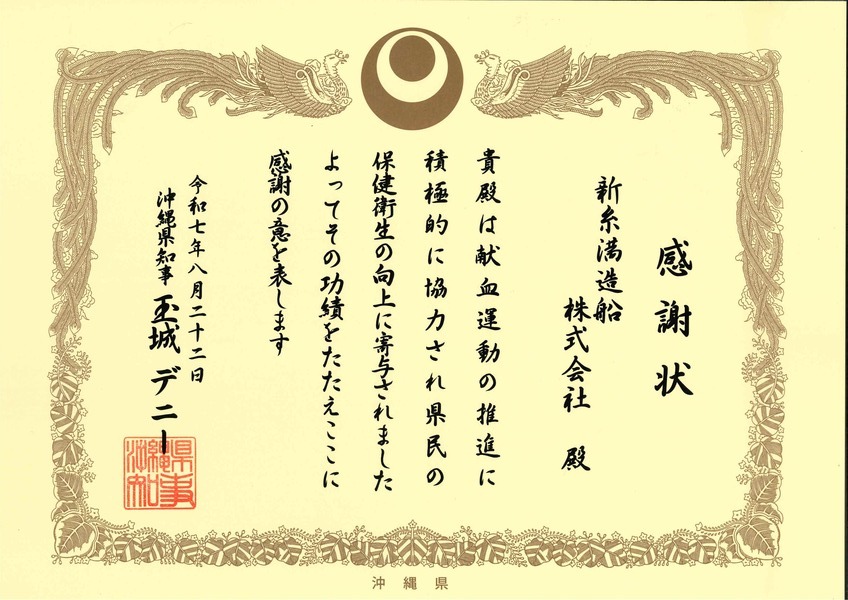 感謝状
新糸満造船
株式会社 殿
貴殿は献血運動の推進に
積極的に協力され県民の
保健衛生の向上に寄与されました
よってその功績をたたえここに
感謝の意を表します
令和七年八月二十二日
沖縄県知事 玉城 デニー
沖縄県知事
沖縄県